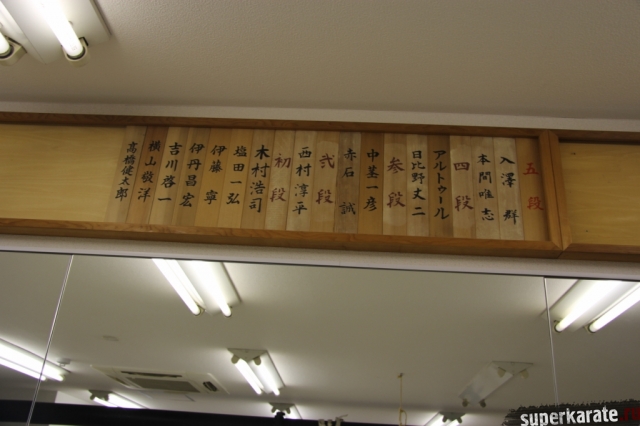 五段
入澤群
本間唯志
四段
アルトゥール
日比野丈二
参段
中葛一彦
赤石誠
弐段
西村淳平
初段
木村浩司
塩田一弘
伊藤寧
伊丹昌宏
吉川啓一
横山駿洋
高橋健太郎
superkarate